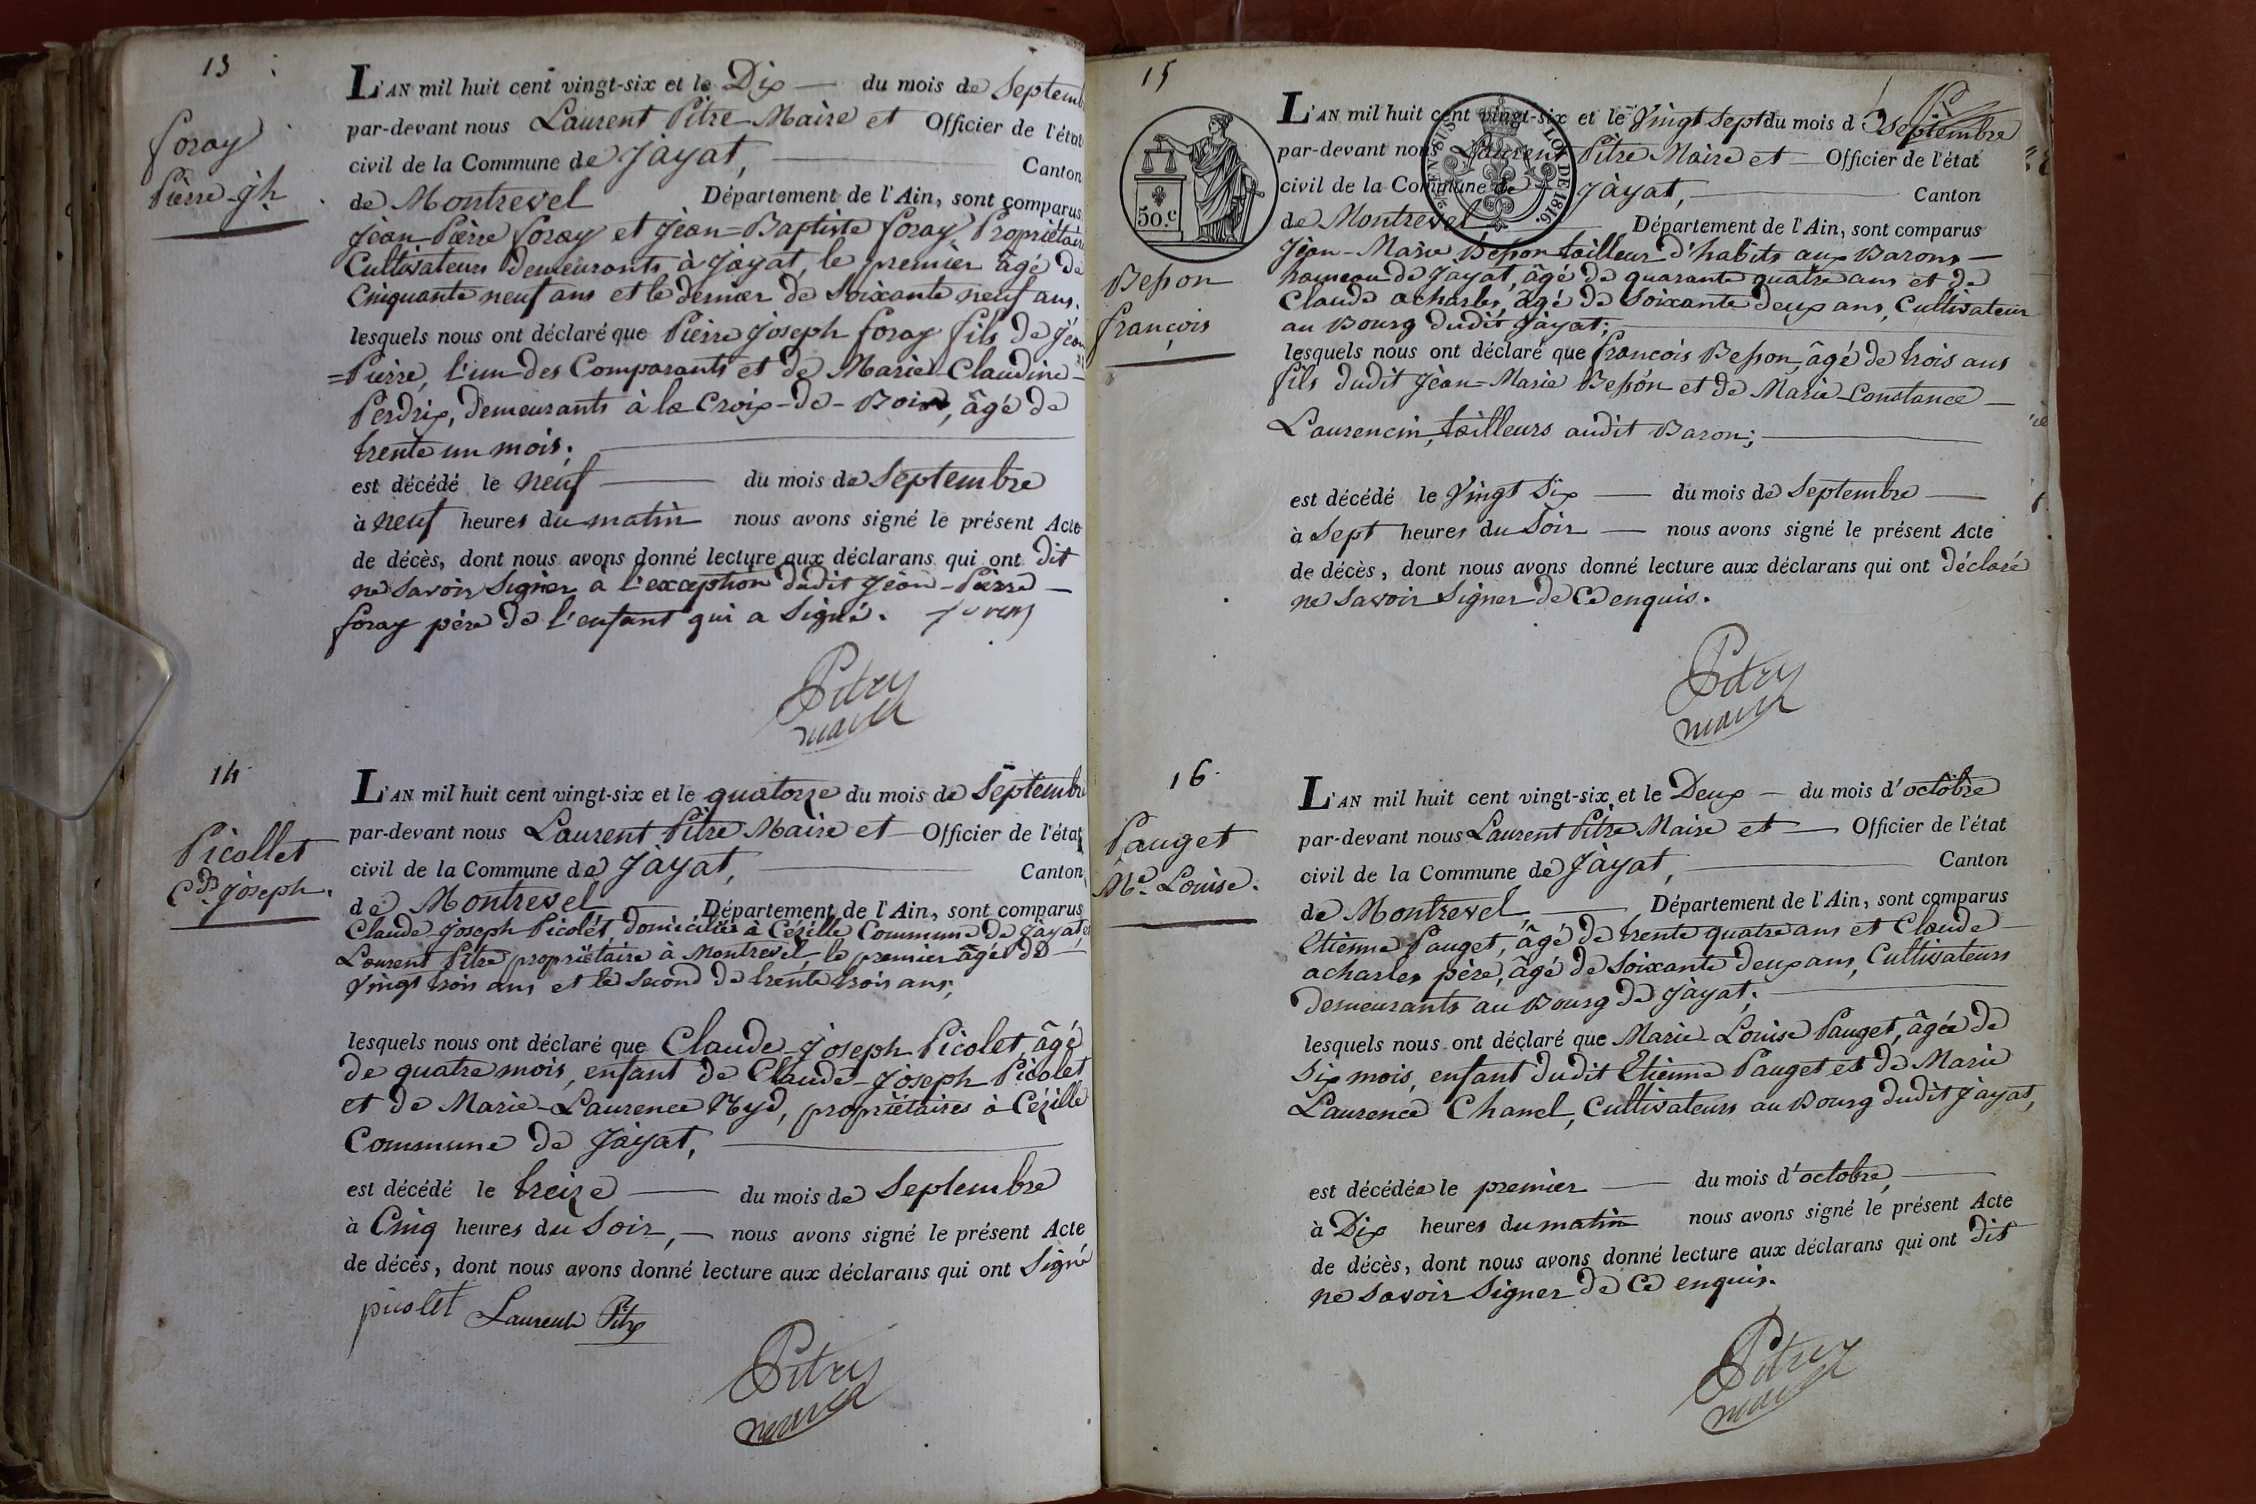 13
foray
Pierre Jh
L'AN mil huit cent vingt-six et le Dix du mois de Septemb
par-devant nous Laurent Pitre Maire et Officier de l'état
civil de la Commune de Jayat, Canton
de Montrevel Département de l'Ain, sont comparus
Jean Pierre foray et Jean=Baptiste foray Propriétaires
Cultivateurs demeurants à Jayat, le premier âgé de
Cinquante neuf ans et le dernier de Soixante neuf ans.
lesquels nous ont déclaré que Pierre Joseph foray fils de Jean
=Pierre, l'un des Comparants et de Marie Claudine
Perdrix, demeurants à la Croix-de-Bois, âgé de
trente un mois;
est décédé le neuf du mois de Septembre
à neuf heures du matin nous avons signé le présent Acte
de décès, dont nous avons donné lecture aux déclarans qui ont dit
ne savoir signer à l'exception dudit Jean-Pierre
foray père de l'enfant qui a signé.
Pitre
maire
14
Picollet
Cde Joseph.
L'AN mil huit cent vingt-six et le quatorze du mois de Septembre
par-devant nous Laurent Pitre Maire et Officier de l'état
civil de la Commune de Jayat, Canton
de Montrevel Département de l'Ain, sont comparus
Claude Joseph Picolet domicilier à Cézille Commune de Jayat, et
Laurent Pitre propriétaire à Montrevel le premier âgé de
Vingt trois ans et le second de trente trois ans;
lesquels nous ont déclaré que Claude Joseph Picolet âgé
de quatre mois, enfant de Claude-Joseph Picolet
et de Marie-Laurence Nyd, propriétaires à Cézille
Commune de Jayat,
est décédé le treize du mois de Septembre
à Cinq heures du Soir, nous avons signé le présent Acte
de décès, dont nous avons donné lecture aux déclarans qui ont Signé
picolet Laurent Pitre
Pitre
maire
15
50.c
LOI DE 1816.
Besson
françois
L'AN mil huit cent vingt-six et le Vingt Sept du mois d Septembre
par-devant nous Laurent Pitre Maire et Officier de l'état
civil de la Commune de Jayat, Canton
de Montrevel Département de l'Ain, sont comparus
Jean-Marie Besson tailleur d'habits aux Barons
hameau de Jayat, âgé de quarante quatre ans et de
Claude acharles, âgé de Soixante deux ans, Cultivateur
au Bourg dudit Jayat;
lesquels nous ont déclaré que françois Besson, âgé de trois ans
fils dudit Jean=Marie Besson et de Marie-Constance
Laurencin, tailleurs audit Baron;
est décédé le Vingt Six du mois de Septembre
à Sept heures du Soir nous avons signé le présent Acte
de décès, dont nous avons donné lecture aux déclarans qui ont déclaré
ne Savoir Signer de Ce enquis.
Pitre
maire
16
Pauget
Me Louise.
L'AN mil huit cent vingt-six et le Deux du mois d'octobre
par-devant nous Laurent Pitre Maire et Officier de l'état
civil de la Commune de Jayat, Canton
de Montrevel Département de l'Ain, sont comparus
Etienne Pauget, âgé de trente quatre ans et Claude
acharles père, âgé de Soixante deux ans, Cultivateurs
demeurants au Bourg de Jayat;
lesquels nous ont déclaré que Marie Louise Pauget, âgée de
Six mois, enfant dudit Etienne Pauget et de Marie
Laurence Chanel, Cultivateurs au Bourg dudit Jayat,
est décédée le premier du mois d'octobre,
à Dix heures du matin nous avons signé le présent Acte
de décès, dont nous avons donné lecture aux déclarans qui ont dit
ne Savoir Signer de Ce enquis.
Pitre
maire